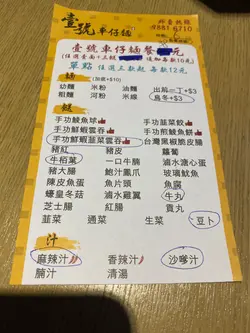 壹號車仔麵
外賣熱線
9881-6710
壹號車仔麵餐 元
任選壹麵十三餸 追加每款10元
單點 任選三款起 每款12元
麵 (加底+$10)
幼麵 米粉 油麵 出前一丁+$3
粗麵 河粉 米線 烏冬+$3
餸
手功鯪魚球 手功韮菜餃
手功鮮蝦雲吞 手功煎鯪魚餅
手功鮮蝦韮菜雲吞 台灣黑椒脆脆腸
豬紅 豬皮 蘿蔔
牛栢葉 一口牛腩 滷水溏心蛋
豬大腸 鮑汁鳳爪 玻璃魷魚
陳皮魚蛋 魚片頭 魚腐
蠔皇冬菇 滷水雞翼 牛丸
芝士腸 紅腸 貢丸
韮菜 通菜 生菜 豆卜
汁
麻辣汁 香辣汁 沙嗲汁
腩汁 清湯